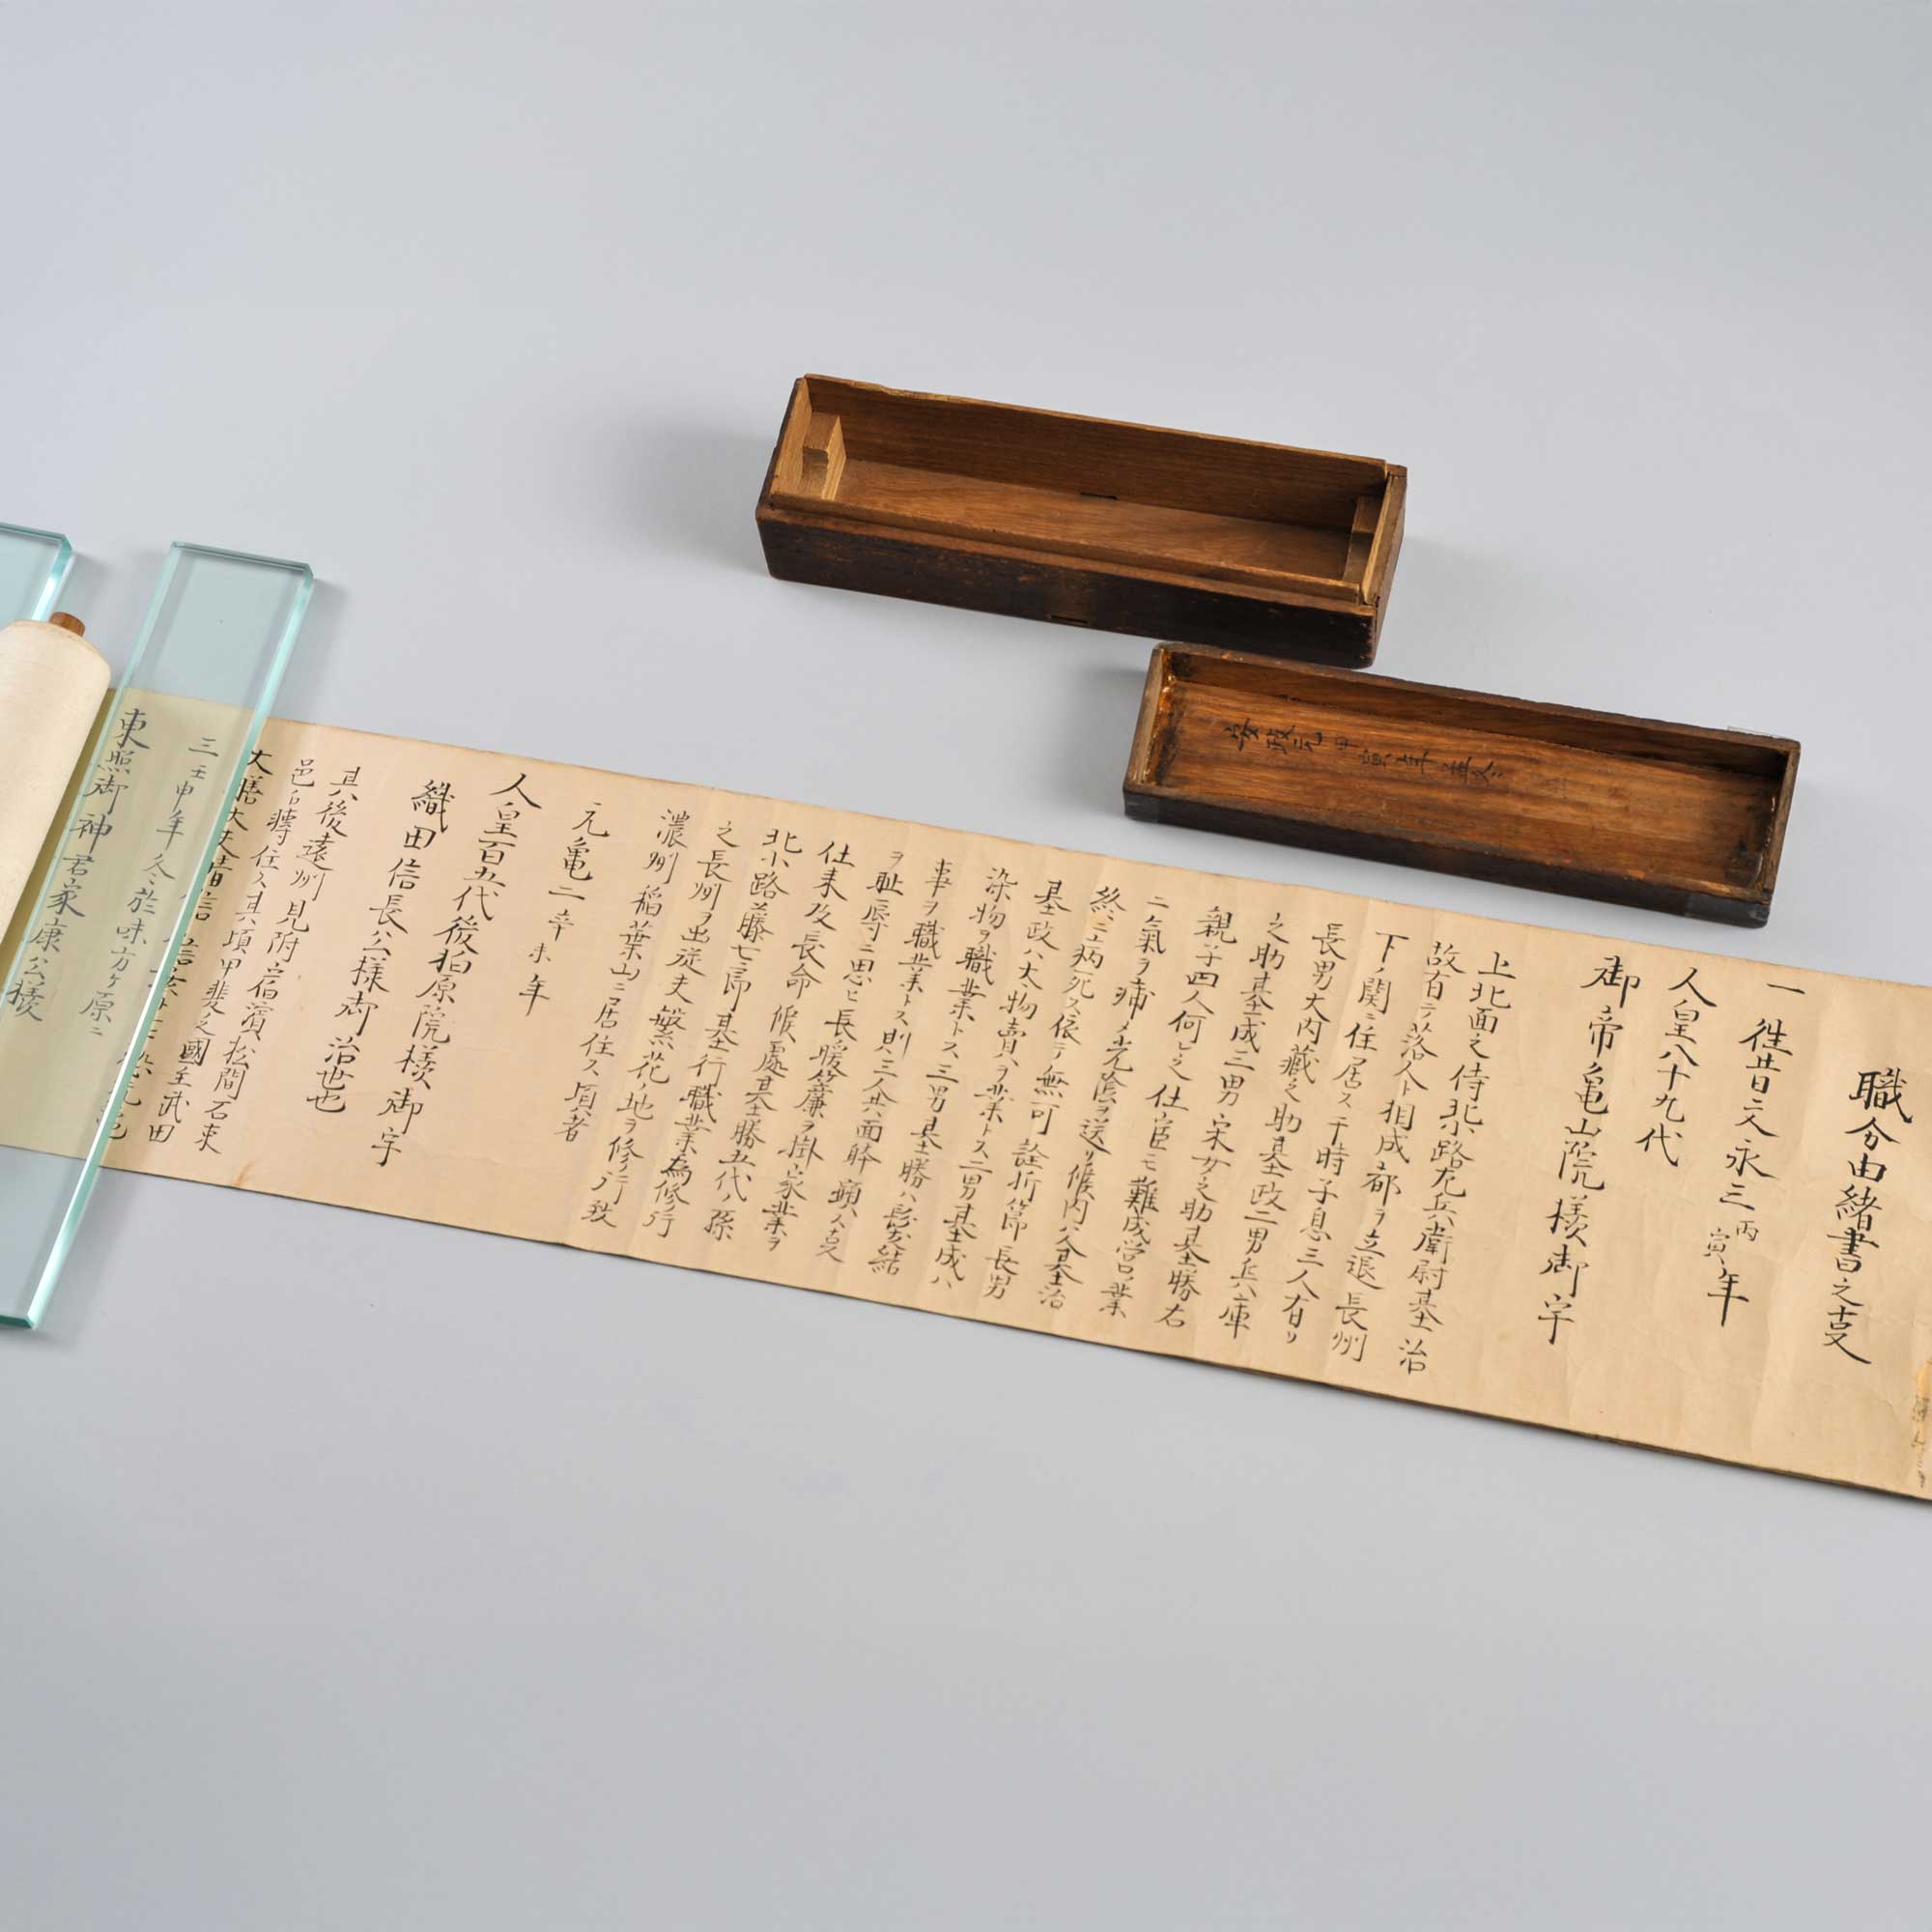 職分由緒書之叓
一 徃昔文永三丙寅年
人皇八十九代
御帝亀山院様御宇
上北面之侍北小路左兵衛尉基治
故有テ落人ト相成都ヲ立退長州
下ノ関ニ住居ス干時子息三人有リ
長男大内藏之助基政二男兵庫
之助基成三男宋女之助基勝右
親子四人何レ之仕官モ難成営業
ニ氣ヲ痛メ光陰ヲ送リ候内父基治
終ニ病死ス依テ無可詮折節長男
基政ハ大物賣ヲ業トス二男基成ハ
染物ヲ職業トス三男基勝ハ髪結
事ヲ職業トス則三人共面躰顕ス叓
ヲ耻辱ニ思ヒ長暖簾ヲ掛家業ヲ
仕来及長命候處基勝五代ノ孫
北小路藤七郎基行職業為修行
之長州ヲ出従夫繁花ノ地ヲ修行致
濃州稲葉山ニ居住ス頃者
元亀二辛未年
人皇百五代後柏原院様御宇
織田信長公様御治世也
其後遠州見附宿濱松間石束
邑江轉住ス其頃甲斐之國主武田
大膳大夫晴信
三壬申年冬於味方ケ原ニ
東照御神君家康公様
安政元甲寅年